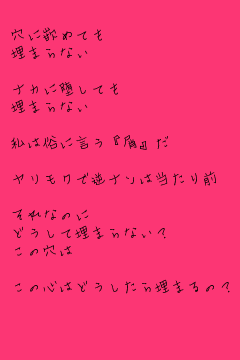 穴に嵌めても
埋まらない
ナカに堕しても
埋まらない
私は俗に言う『屑』だ
ヤリモクで逆ナンは当たり前
それなのに
どうして埋まらない?
この穴は
この心はどうしたら埋まるの?